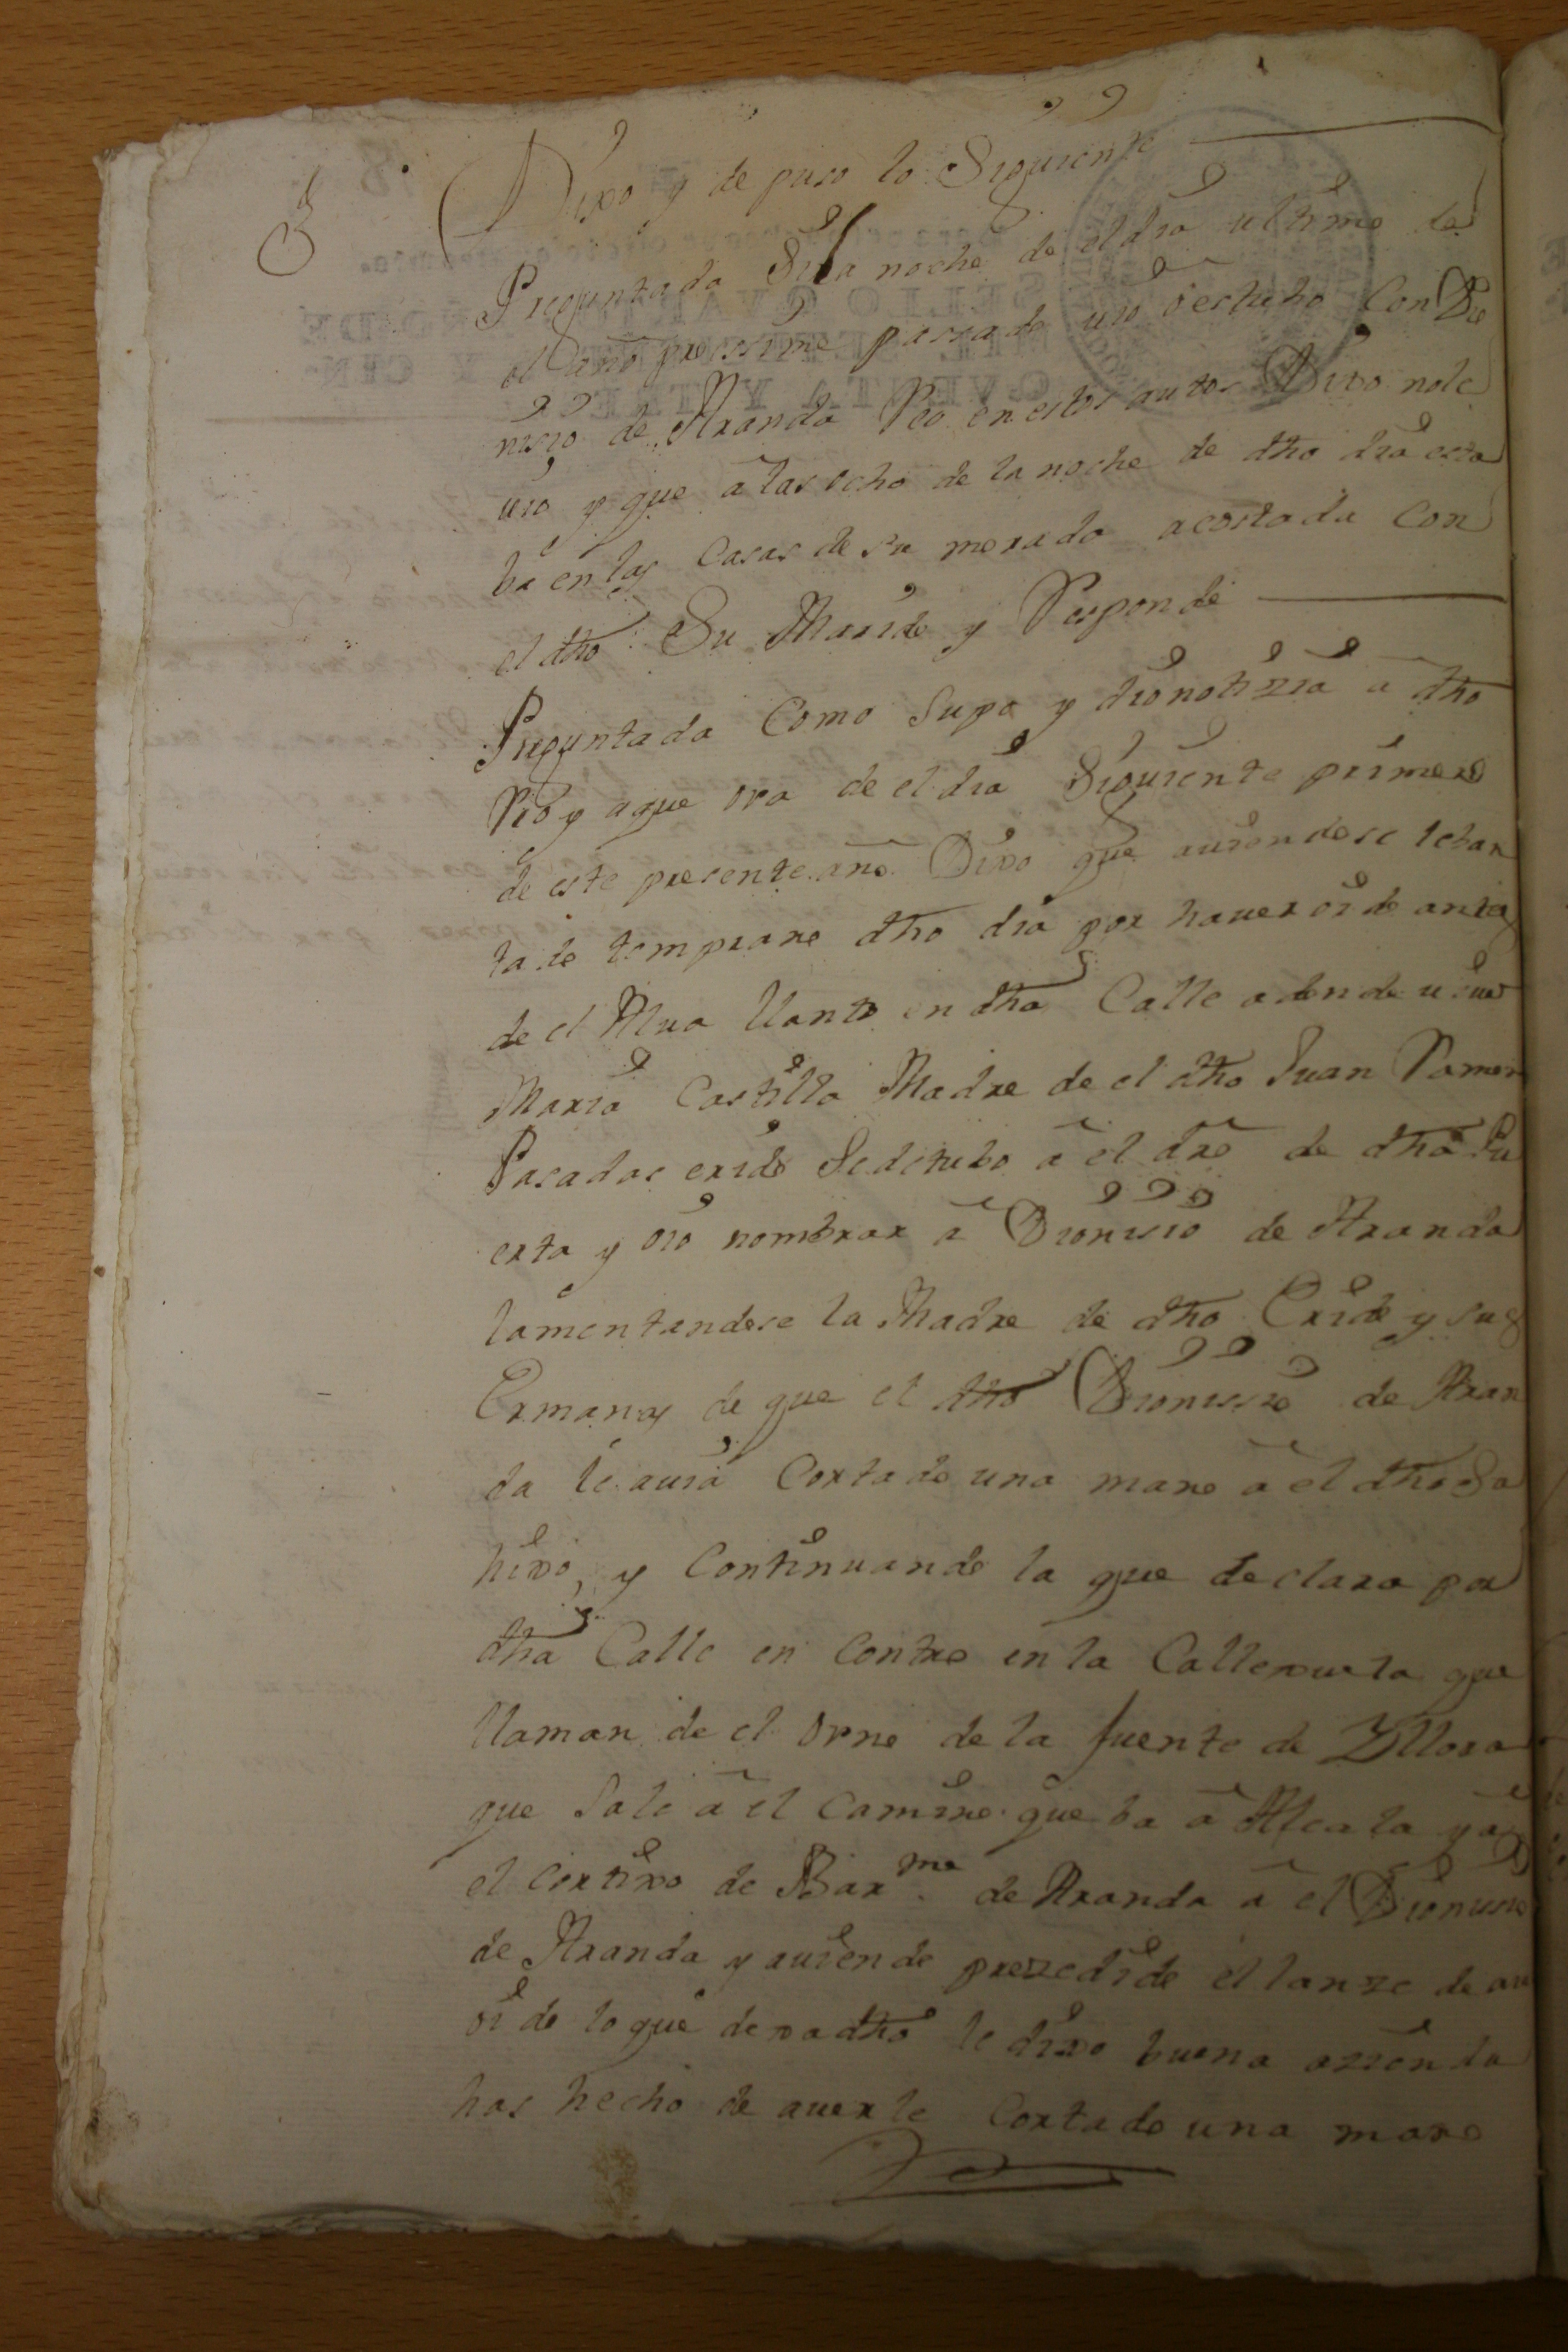 Dixo y depuso lo Siguiente
Preguntada Si la noche de el dia ultimo de
el año proссimo passado vio u estubo Con Dio
nisio de Aranda Reo en estos autos Dixo no le
vio y que a las ocho de la noche de dho dia esta
ba en las Casas de su morada acostada Con
el dho Su Marido y Responde
Preguntada Como Supo y dio notizia a dho
Reo y a que ora de el dia Siguiente primero
de este presente año Dixo que auiendose leban
tado temprano dho dia por hauer oido antes
de el Alua llanto en dha Calle a donde uiue
Maria Castilla Madre de el dho Juan
Pasadas exido Se detubo a el de dha Pu
erta y oio nombrar a Dionisio de Aranda
lamentandose la Madre de dho Exido y sus
Ermanas de que el dho Dionissio de Aran
da le auia Cortado una mano a el dho Su
hixo, y Continuando la que declara por
dha Calle en Contro en la Callexuela que
llaman de el orno de la fuente de Yllora
que Sale a el Camino que ba a Alcala y a
el Cortixo de Barme de Aranda a el Dionisio
de Aranda y auiendo prezedido el lanze de au
oido lo que dexa dho le dixo buena azienda
has hecho de auerle Cortado una mano